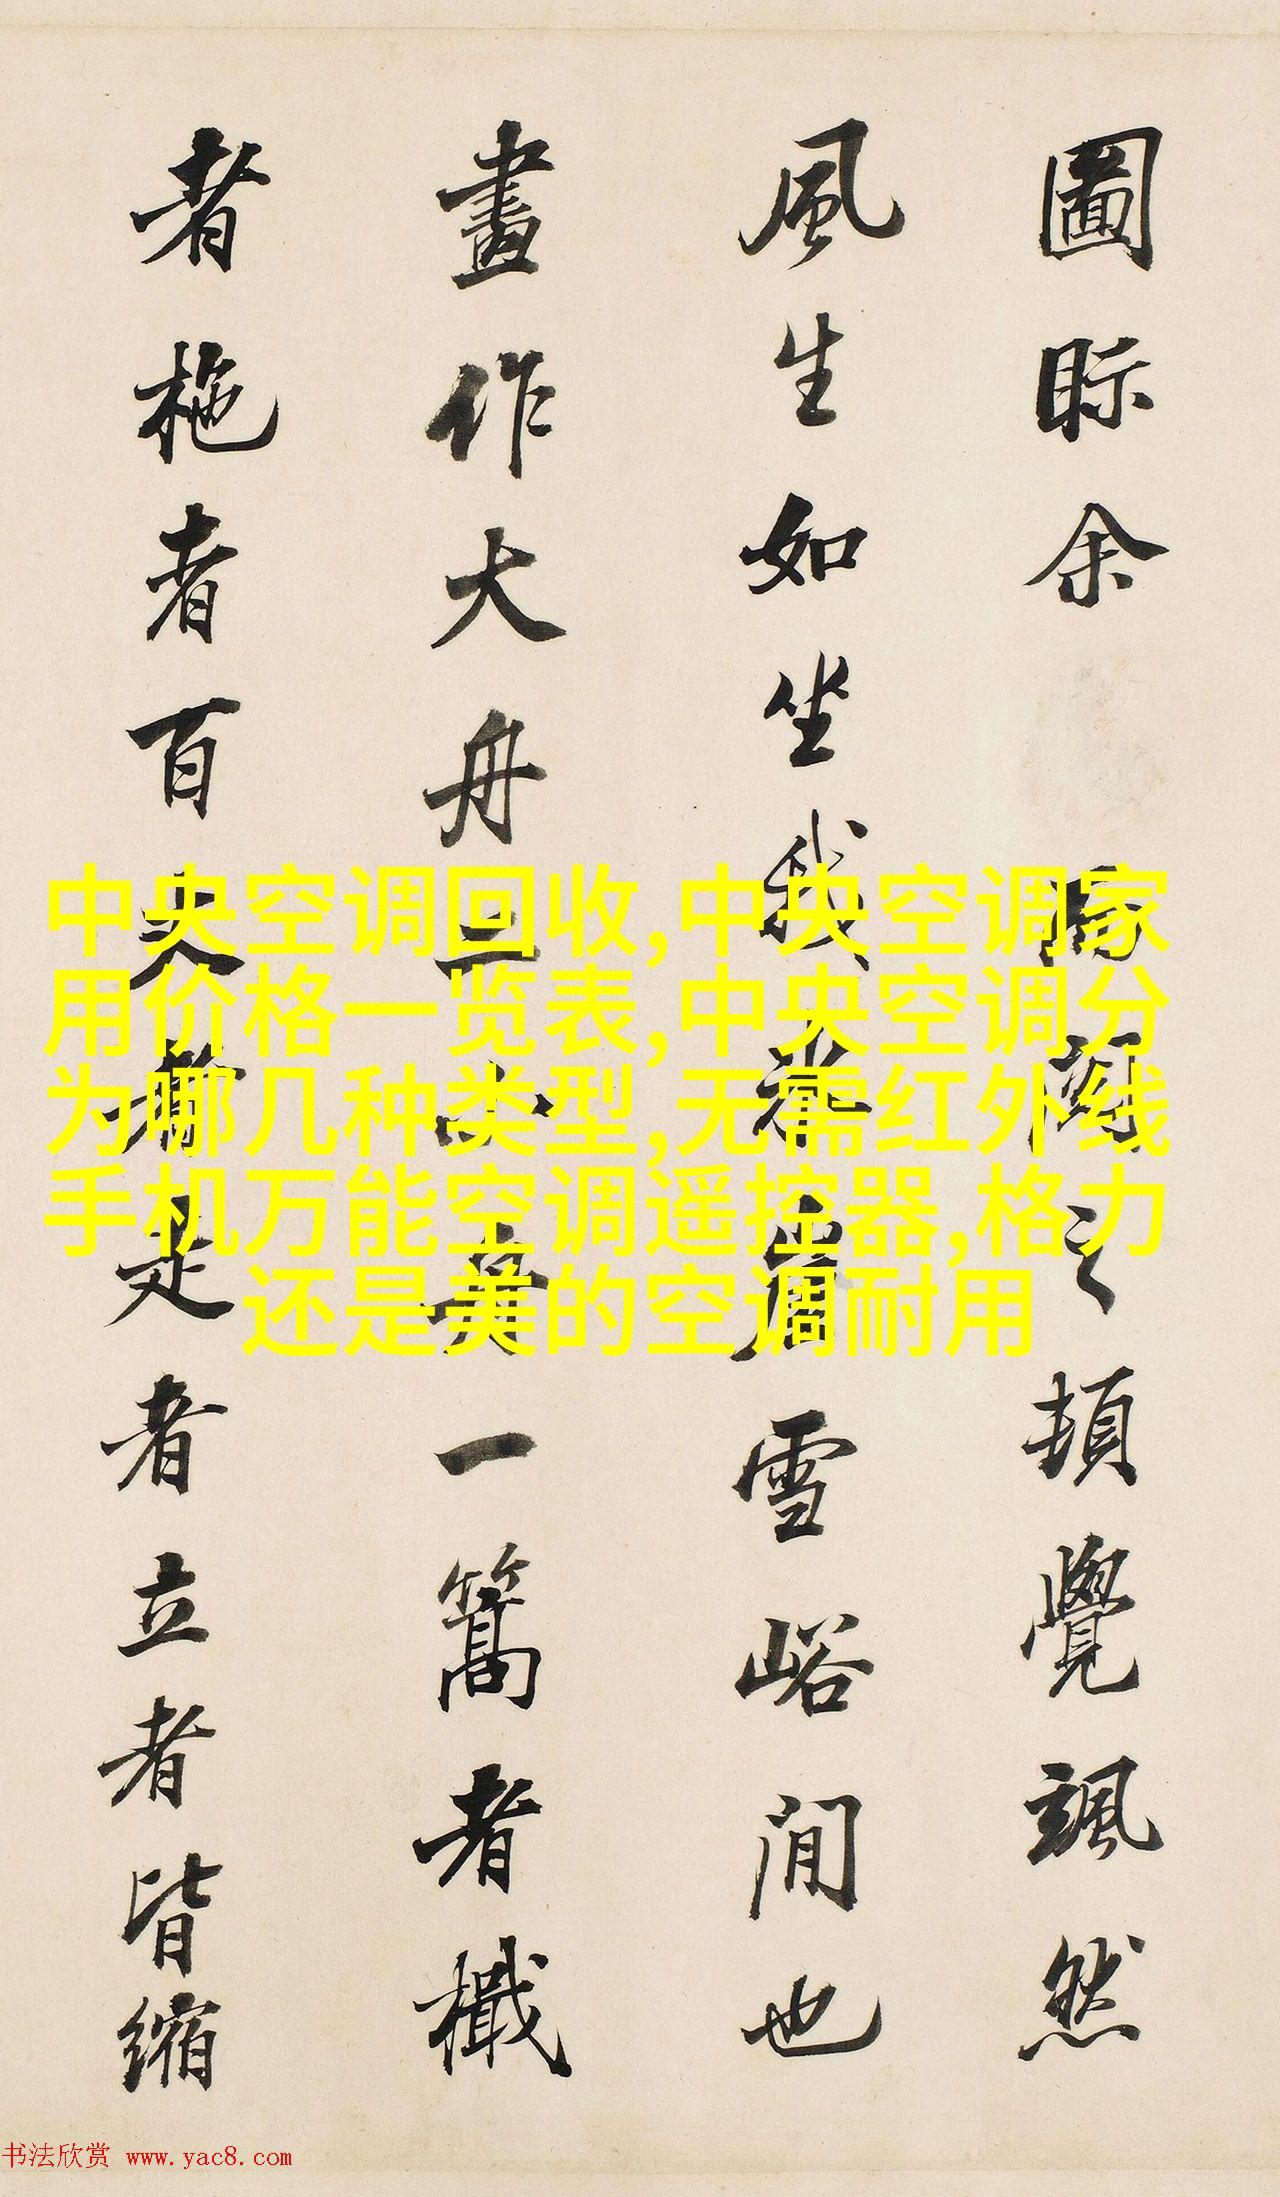 圖眎余
閱之頓覺颯然
風生如坐我
雪峪間也
畫作大舟
一篙者檝
者柂者百
者立者皆縮
中央空调回收,中央空调家
用价格一览表,中央空调分
为哪几种类型,无需红外线
手机万能空调遥控器,格力
还是美的空调耐用
书法欣赏 www.yac8.com